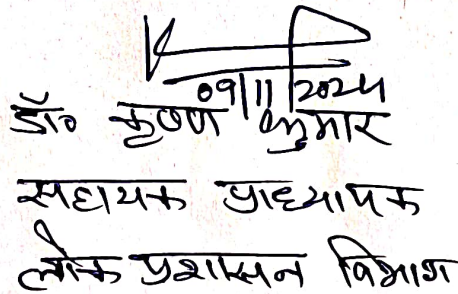 09/11/2024
डॉ० कृष्ण कुमार
सहायक प्राध्यापक
लोक प्रशासन विभाग